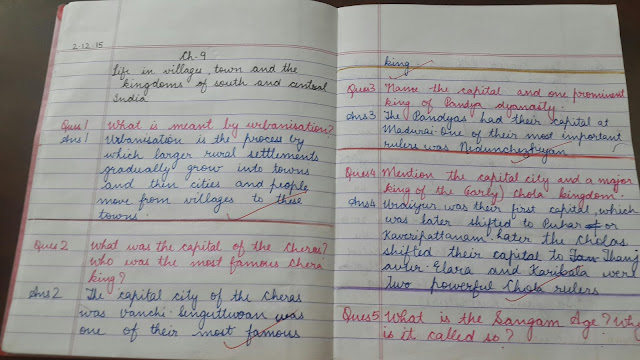 2-12-15
Ch-9
Life in villages, town and the
kingdoms of south and central
India
Ques 1 What is meant by urbanisation?
Ans 1 Urbanisation is the process by
which larger rural settlements
gradually grow into towns
and then cities and people
move from villages to these
towns.
Ques 2 What was the capital of the Cheras?
Who was the most famous Chera
king?
Ans 2 The capital city of the Cheras
was Vanchi. Singuttuvan was
one of their most famous
king.
Ques 3 Name the capital and one prominent
king of Pandya dyanasty.
Ans 3 The Pandyas had their capital at
Madurai. One of their most important
rulers was
Ques 4 Mention the capital city and a major
king of the (Early) Chola kingdom.
Ans 4 Uraiyur was their first capital, which
was later shifted to Puhar or
Kaveripattanam. Later the Cholas
shifted their capital to
Elara and Karikala were
Two powerful Chola rulers
Ques 5 What is the Sangam Age? Why
is it called so?